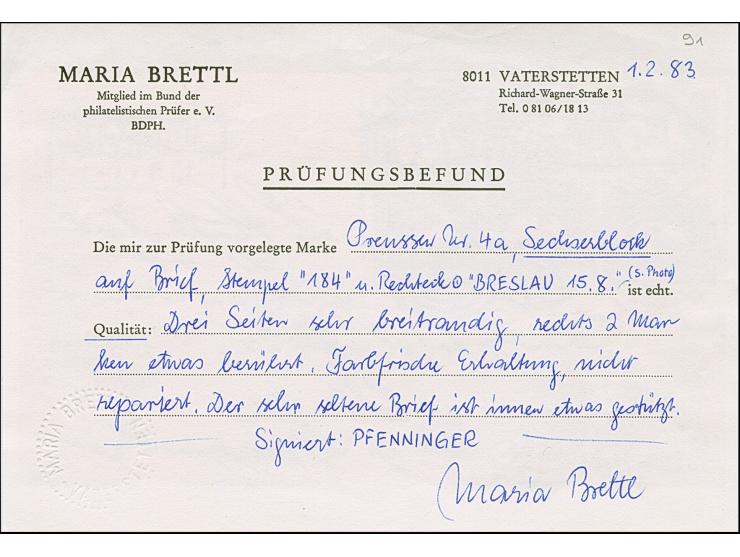 91
MARIA BRETTL
Mitglied im Bund der
philatelistischen Prüfer e. V.
BDPH.
8011 VATERSTETTEN 1.2.83
Richard-Wagner-Straße 31
Tel. 0 81 06/18 13
PRÜFUNGSBEFUND
Die mir zur Prüfung vorgelegte Marke Preussen Nr. 4a, Sechserblock
auf Brief, Stempel "184" u. Rechteck⊙ "BRESLAU 15.8." (s. Photo) ist echt.
Qualität: Drei Seiten sehr breitrandig, rechts 2 Mar
ken etwas berührt. Farbfrische Erhaltung, nicht
repariert. Der sehr seltene Brief ist innen etwas gestützt.
Signiert: PFENNINGER
Maria Brettl
MARIA BRETTL